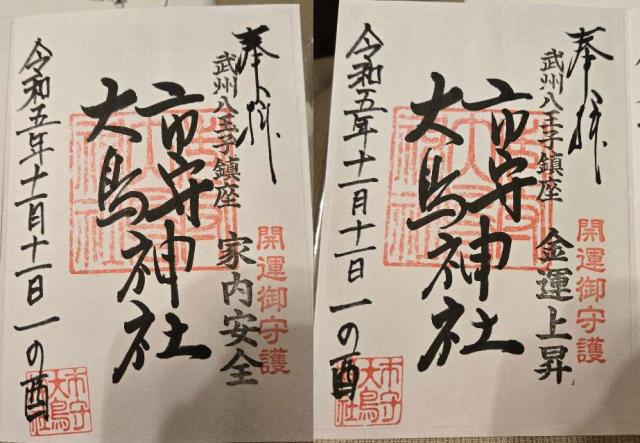 奉拝
武州八王子鎮座
開運御守護
家内安全
市守
大鳥
神社
令和五年十一月十一日 一の酉
市守
大鳥
奉拝
武州八王子鎮座
開運御守護
金運上昇
市守
大鳥
神社
令和五年十一月十一日 一の酉
市守
大鳥